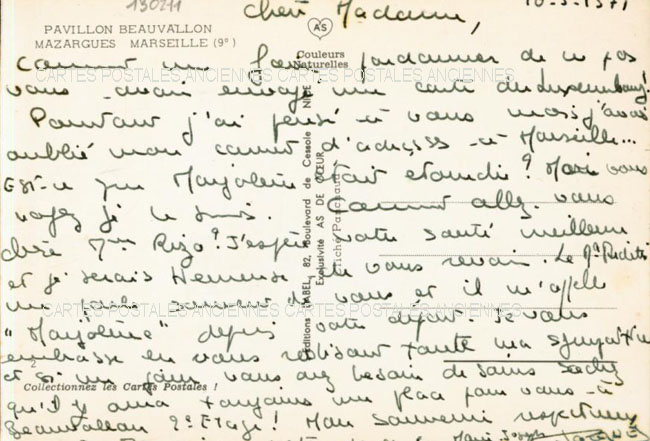 130211
Chère Madame,
10-3-1971
PAVILLON BEAUVALLON
MAZARGUES MARSEILLE (9e)
AS
Couleurs
Naturelles
Comment me faire pardonner de ne pas
vous avoir envoyé une carte du Luxembourg!
Pourtant j'ai pensé à vous mais j'avais
oublié mon carnet d'adresses à Marseille...
Est-ce que Marjolaine était étourdie? Mais vous
voyez je le suis. Comment allez-vous
chère Mme Rizo? J'espère votre santé meilleure
et je serais Heureuse de vous revoir. Le
un à vous et il m'appelle
"Marjolaine" depuis votre départ. Je vous
embrasse en vous redisant toute ma sympathie
et si un jour vous avez besoin de soins sachez
qu'il y aura toujours une place pour vous à
Beauvallon 2e Etage! Mon souvenir respectueux
Collectionnez les Cartes Postales !
Editions LABEL, 82, Boulevard de Cessole NICE
Exclusivité AS DE CŒUR
Cliché Panchaud
CARTES POSTALES ANCIENNES CARTES POSTALES ANCIENNES
CARTES POSTALES ANCIENNES CARTES POSTALES ANCIENNES